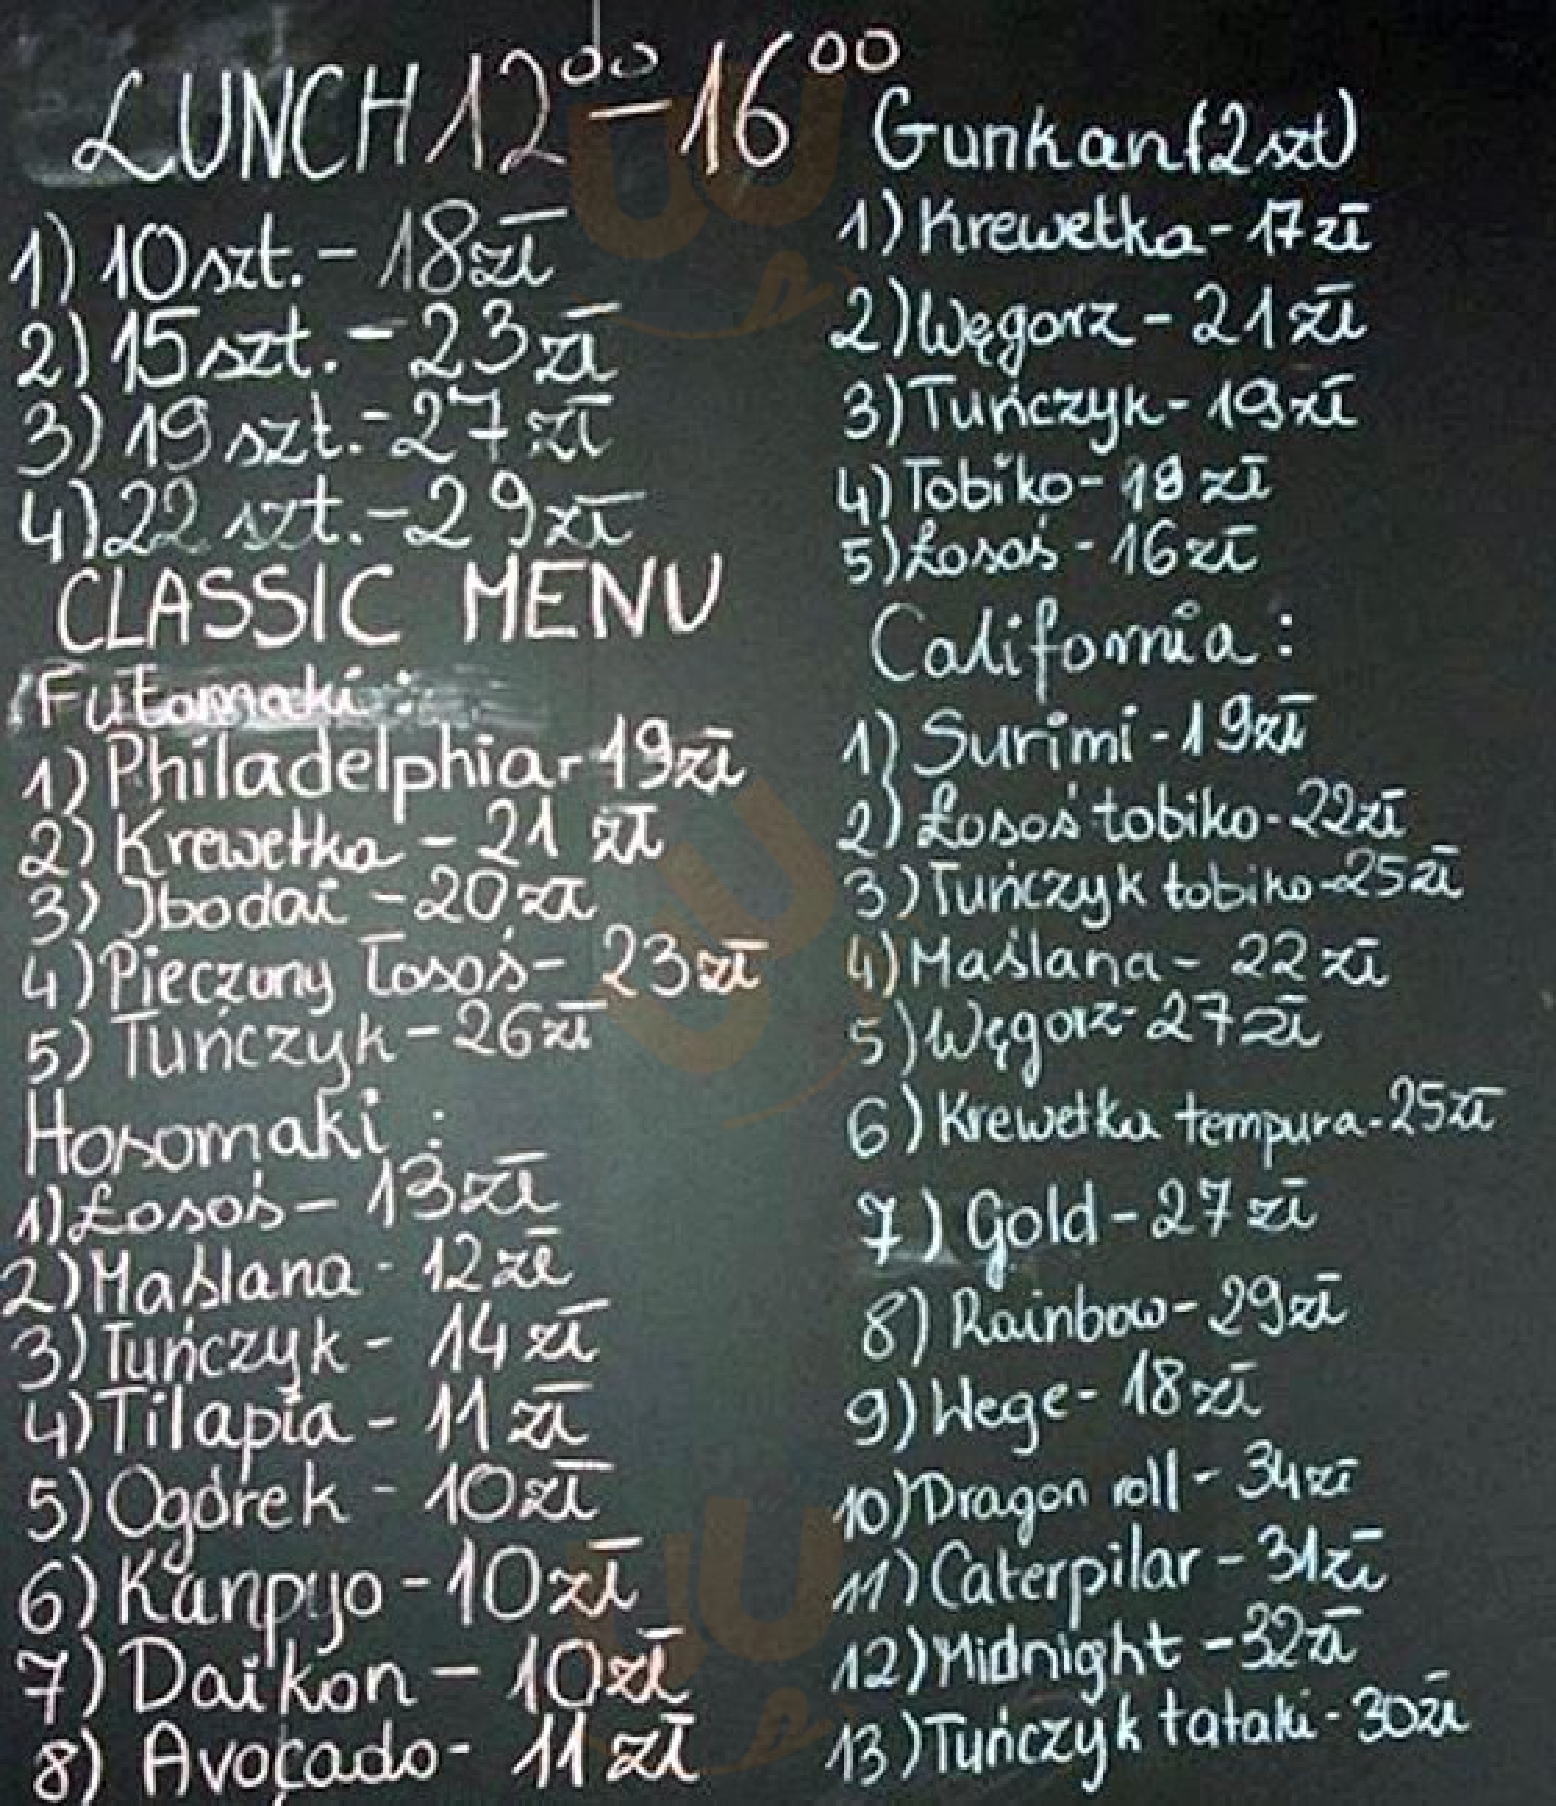 LUNCH 12⁰⁰-16⁰⁰
1) 10szt. - 18zł
2) 15szt. - 23zł
3) 19szt. - 27zł
4) 22szt. - 29zł
CLASSIC MENU
Futomaki:
1) Philadelphia - 19zł
2) Krewetka - 21zł
3) Ibodai - 20zł
4) Pieczony łosoś - 23zł
5) Tuńczyk - 26zł
Hosomaki:
1) Łosoś - 13zł
2) Maślana - 12zł
3) Tuńczyk - 14zł
4) Tilapia - 11zł
5) Ogórek - 10zł
6) Kanpyo - 10zł
7) Daikon - 10zł
8) Avocado - 11zł
Gunkan (2szt)
1) Krewetka - 17zł
2) Węgorz - 21zł
3) Tuńczyk - 19zł
4) Tobiko - 18zł
5) Łosoś - 16zł
California:
1) Surimi - 19zł
2) Łosoś tobiko - 22zł
3) Tuńczyk tobiko - 25zł
4) Maślana - 22zł
5) Węgorz - 27zł
6) Krewetka tempura - 25zł
7) Gold - 27zł
8) Rainbow - 29zł
9) Wege - 18zł
10) Dragon roll - 34zł
11) Caterpilar - 31zł
12) Midnight - 32zł
13) Tuńczyk tataki - 30zł